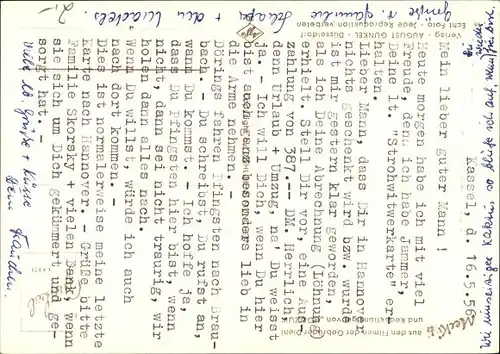 Kassel, d. 16.5.56
Mein lieber guter Mann !
Heute morgen habe ich mit viel
Freude, denn ich habe Jammer,
Deine lt. "Sorchwitwerkarte" er-
halten.
Lieber Mann, dass Dir in Hannover
nichts geschenkt wird bzw. wurde
ist mir gestern klar geworden,
als ich Deine Abrechnung (Löhnung)
erhielt. Stell Dir vor, eine Aus-
zahlung von 387.-- DM. Herrlich,
denn Urlaub + Umzug, na Du weisst
ja. - Ich will Dich, wenn Du hier
bist auch ganz besonders lieb in
die Arme nehmen. -
Dörings fahren Pfingsten nach Brau-
bach. - Du schreibst, Du rufst an,
wenn Du kommst. - Ich hoffe ja,
dass Du Pfingsten hier bist, wenn
nicht, dann sei nicht traurig, wir
holen dann alles nach.
Wenn Du willst, würde ich auch
nach dort kommen. -
Dies ist normalerweise meine letzte
Karte nach Hannover. - Grüße bitte
Familie Skorsky + vielen Dank, wenn
sie sich um Dich gekümmert und ge-
sorgt hat. -
Viele lb Grüße + Küsse
Dein Frauchen.
Verlag - AUGUST GUNKEL - Düsseldorf
Echt Foto - Jede Reproduktion verboten
aus den Filmen der Gebrüder Diehl
Mecki